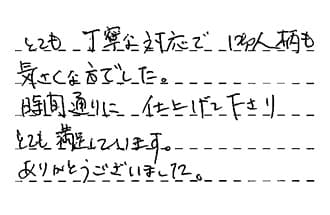 とても 丁寧な対応で お人柄も
気さくな方でした。
時間通りに 仕上げて下さり
とても満足しています。
ありがとうございました。